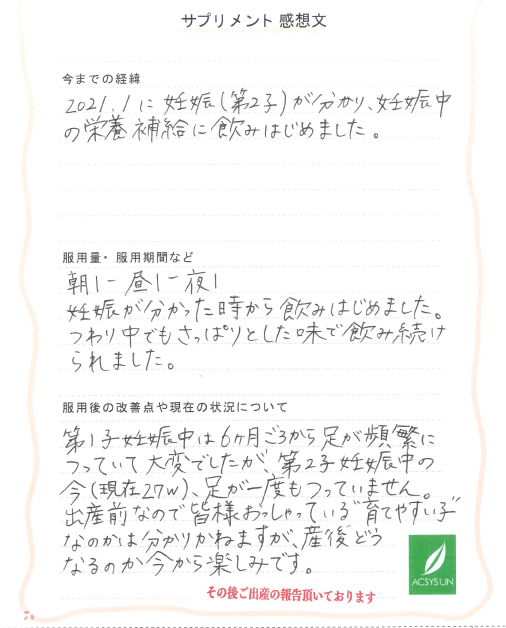 サプリメント 感想文
今までの経緯
2021.1 に 妊娠(第2子)が分かり、妊娠中
の栄養補給に飲みはじめました。
服用量・服用期間など
朝1－昼1－夜1
妊娠が分かった時から飲みはじめました。
つわり中でもさっぱりとした味で飲み続け
られました。
服用後の改善点や現在の状況について
第1子妊娠中は6ヶ月ごろから足が頻繁に
つっていて大変でしたが、第2子妊娠中の
今(現在27w)、足が一度もつっていません。
出産前なので皆様おっしゃっている"育てやすい子"
なのかは分かりかねますが、産後どう
なるのか今から楽しみです。
ACSYSUN
その後ご出産の報告頂いております